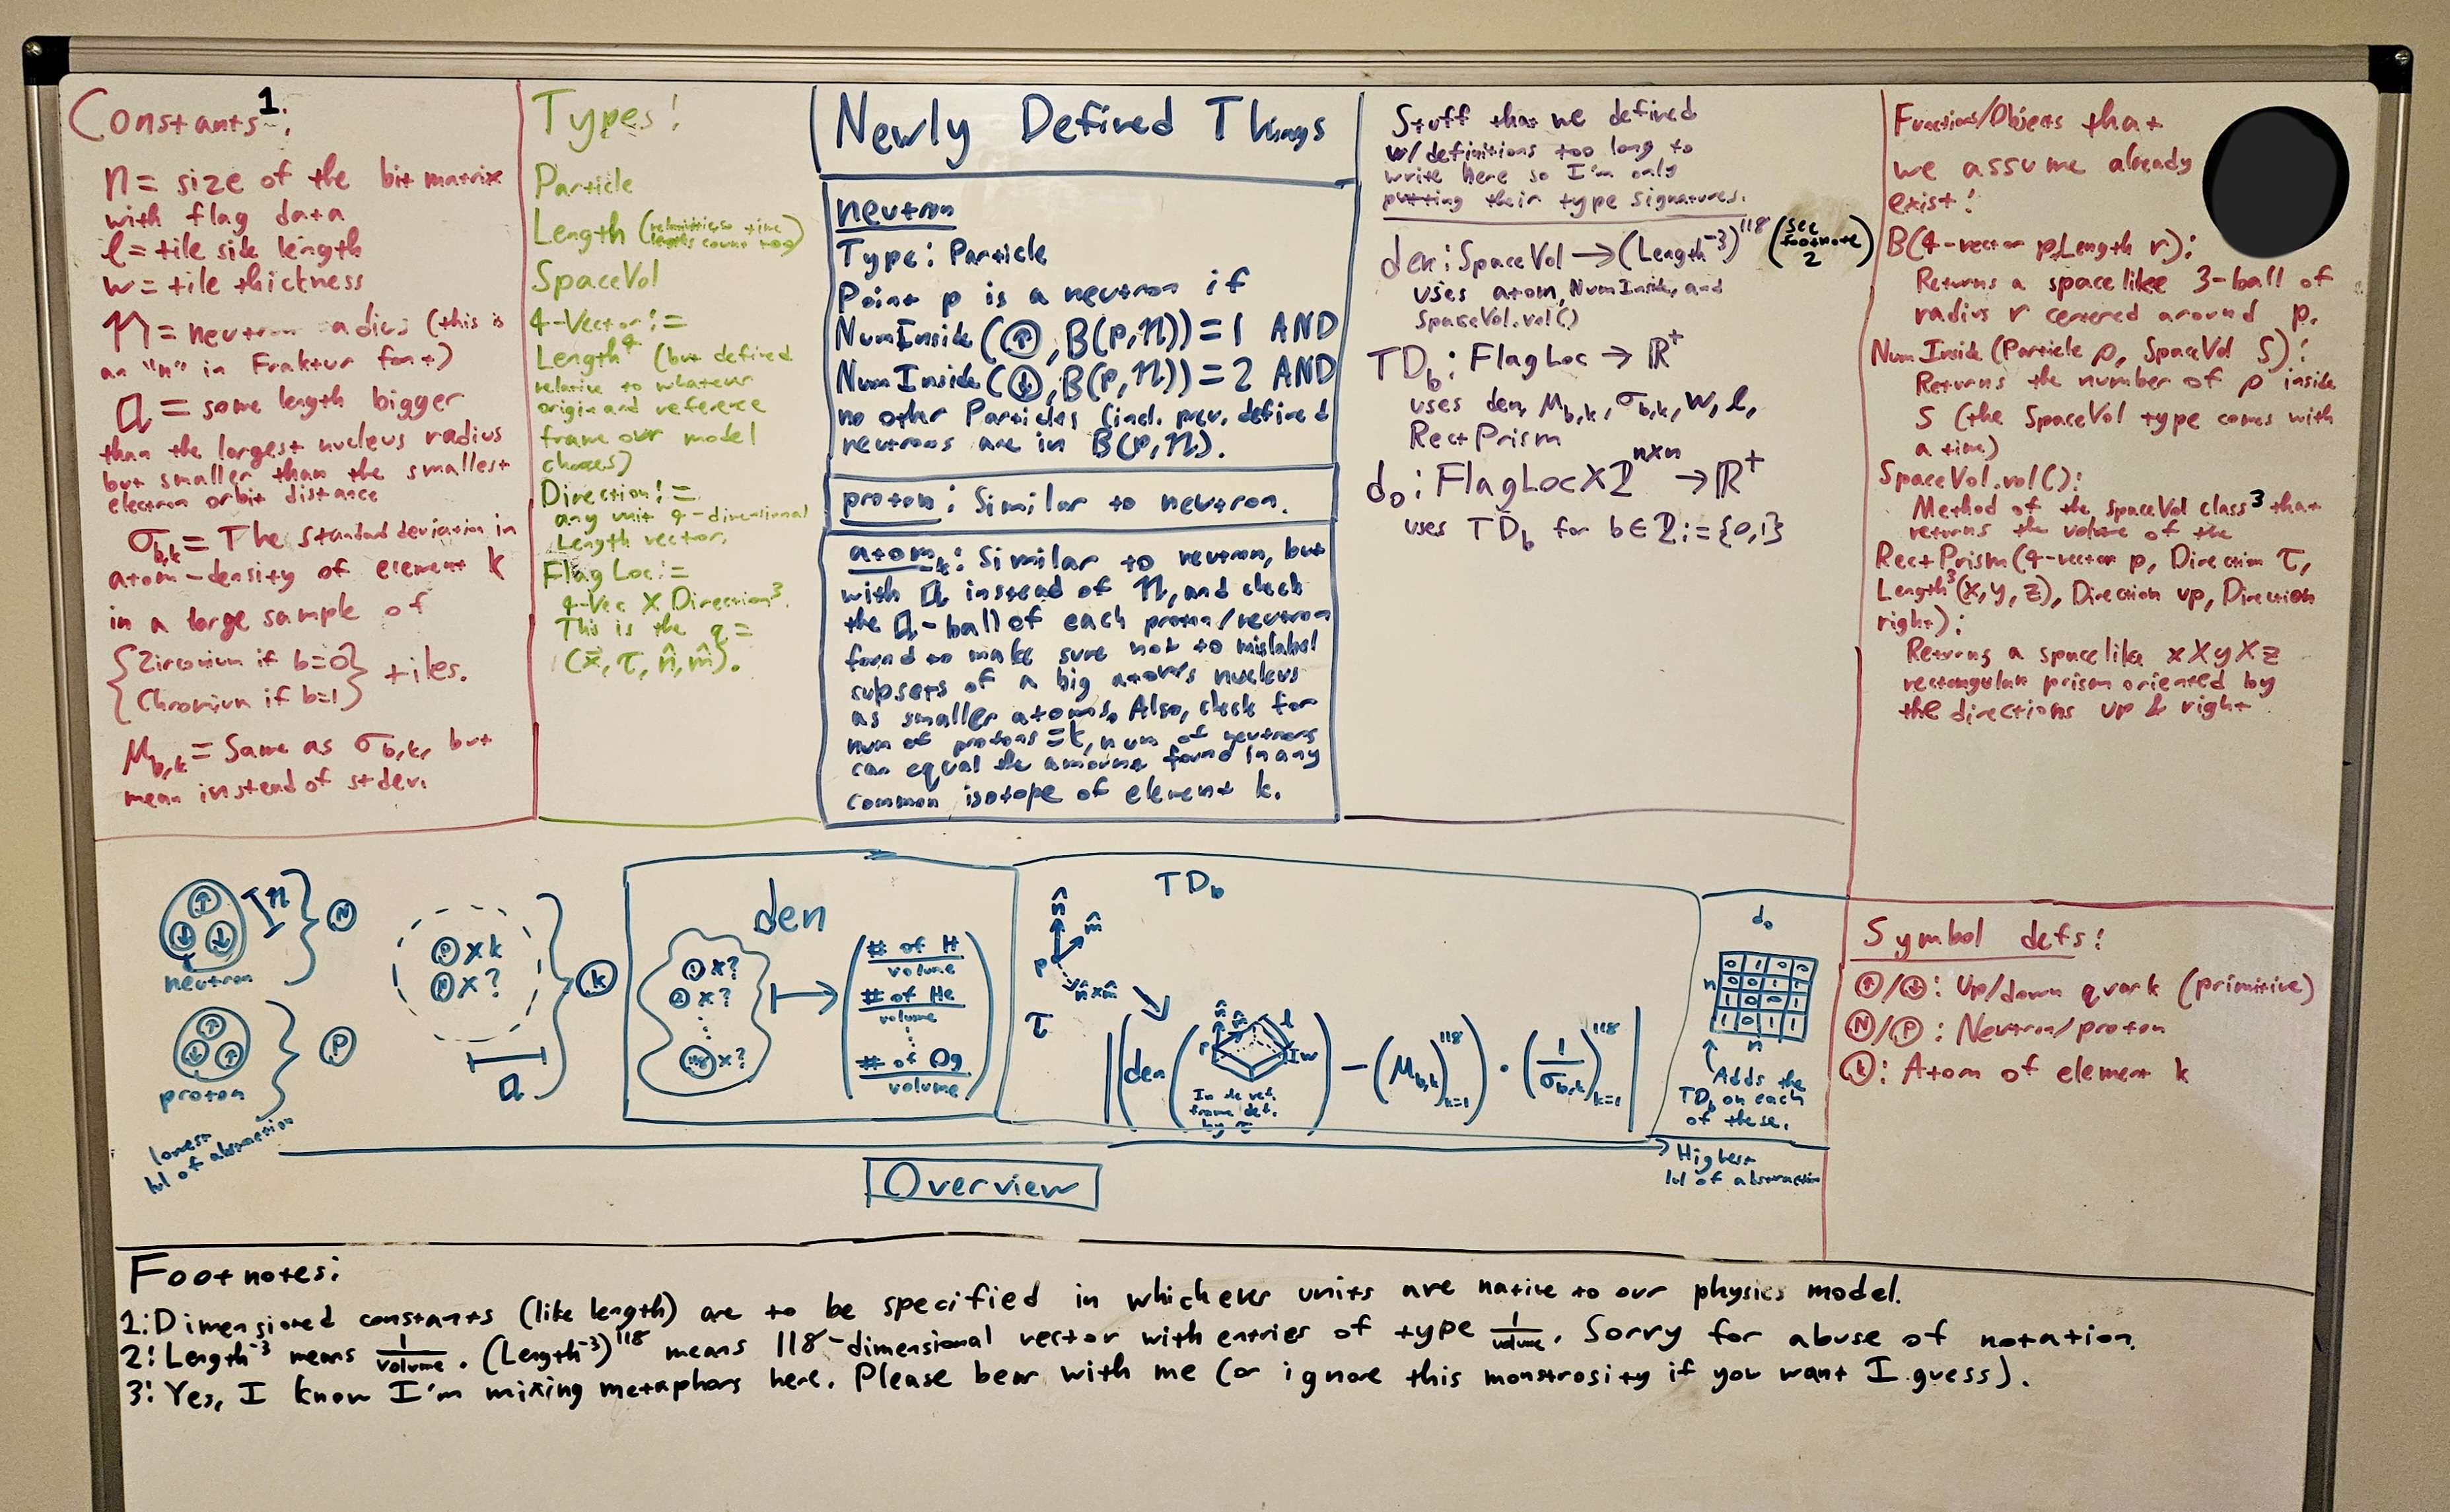 Constants¹:
n = size of the bit matrix
with flag data
l = tile side length
w = tile thickness
𝔫 = neutron radius (this is
an "n" in Fraktur font)
𝔞 = some length bigger
than the largest nucleus radius
but smaller than the smallest
electron orbit distance
σ_b,k = The standard deviation in
atom-density of element k
in a large sample of
{Zirconium if b=0
Chromium if b=1} tiles.
μ_b,k = Same as σ_b,k, but
mean instead of st dev.
Types!
Particle
Length (relativity so time
lengths count too)
SpaceVol
4-Vector :=
Length⁴ (but defined
relative to whatever
origin and reference
frame our model
chooses)
Direction :=
any unit 4-dimensional
Length vector.
FlagLoc :=
4-Vec X Direction³.
This is the q =
(x̄, τ, n̂, m̂).
Newly Defined Things
neutron
Type: Particle
Point p is a neutron if
NumInside(↑, B(p,𝔫)) = 1 AND
NumInside(↓, B(p,𝔫)) = 2 AND
no other Particles (incl. prev. defined
neutrons are in B(p,𝔫).
proton: Similar to neutron.
atom_k: Similar to neutron, but
with 𝔞 instead of 𝔫, and check
the 𝔞-ball of each proton/neutron
found to make sure not to mislabel
subsets of a big atom's nucleus
as smaller atoms. Also, check for
num of protons = k, num of neutrons
can equal the amount found in any
common isotope of element k.
Stuff that we defined
w/ definitions too long to
write here so I'm only
putting their type signatures.
den: SpaceVol → (Length⁻³)¹¹⁸ (see footnote 2)
uses atom, NumInside, and
SpaceVol.vol()
TD_b: FlagLoc → ℝ⁺
uses den, μ_b,k, σ_b,k, w, l,
RectPrism
d₀: FlagLoc X 2^(n×n) → ℝ⁺
uses TD_b for b ∈ 2 := {0,1}
Functions/Objects that
we assume already
exist:
B(4-vector p, Length r):
Returns a spacelike 3-ball of
radius r centered around p.
NumInside (Particle ρ, SpaceVol S):
Returns the number of ρ inside
S (the SpaceVol type comes with
a time)
SpaceVol.vol():
Method of the SpaceVol class³ that
returns the volume of the
RectPrism(4-vector p, Direction τ,
Length³(x,y,z), Direction up, Direction
right):
Returns a spacelike xXyXz
rectangular prism oriented by
the directions up & right
↑ ↓ ↓ 𝔫 } N
neutron
↑ ↓ ↑ } P
proton
P x k
N x ?
𝔞 } k
den
1 x?
2 x?
⋮
118 x?
# of H / volume
# of He / volume
⋮
# of Og / volume
TD_b
n̂ m̂ p n̂×m̂
τ
|(den( n̂ m̂ p l w
In the ref.
frame def.
by τ
) − (μ_b,k)¹¹⁸_k=1) · (1/σ_b,k)¹¹⁸_k=1|
d₀
0 1 0 0
1 0 0 1
1 0 1 1
n
n
Adds the
TD_b on each
of these.
lowest
lvl of abstraction
Highest
lvl of abstraction
Overview
Symbol defs:
↑/↓: Up/down quark (primitive)
N/P: Neutron/proton
k: Atom of element k
Footnotes:
1: Dimensioned constants (like length) are to be specified in whichever units are native to our physics model.
2: Length⁻³ means 1/volume. (Length⁻³)¹¹⁸ means 118-dimensional vector with entries of type 1/volume. Sorry for abuse of notation.
3: Yes, I know I'm mixing metaphors here. Please bear with me (or ignore this monstrosity if you want I guess).